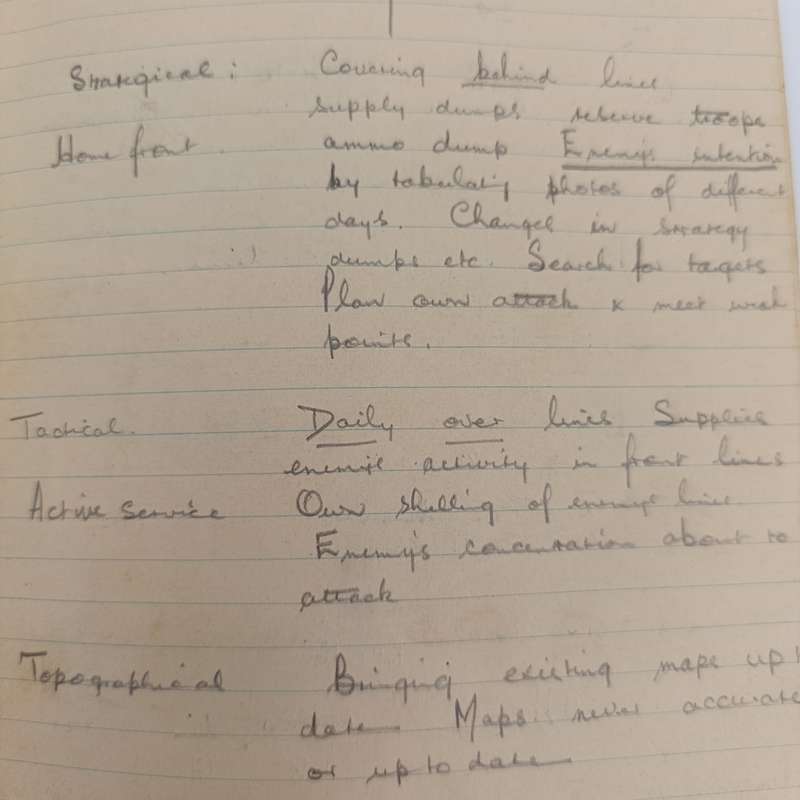 Strategical : Covering behind lines
supply dumps reserve troops
Home front ammo dump Enemy's intention
by tabulating photos of different
days. Changes in strategy
dumps etc. Search for targets
Plan own attack & meet weak
points.
Tactical. Daily over lines Supplies
enemy's activity in front lines
Active Service Own shelling of enemys lines
Enemy's concentration about to
attack
Topographical Bringing existing maps up t
date Maps never accurate
or up to date